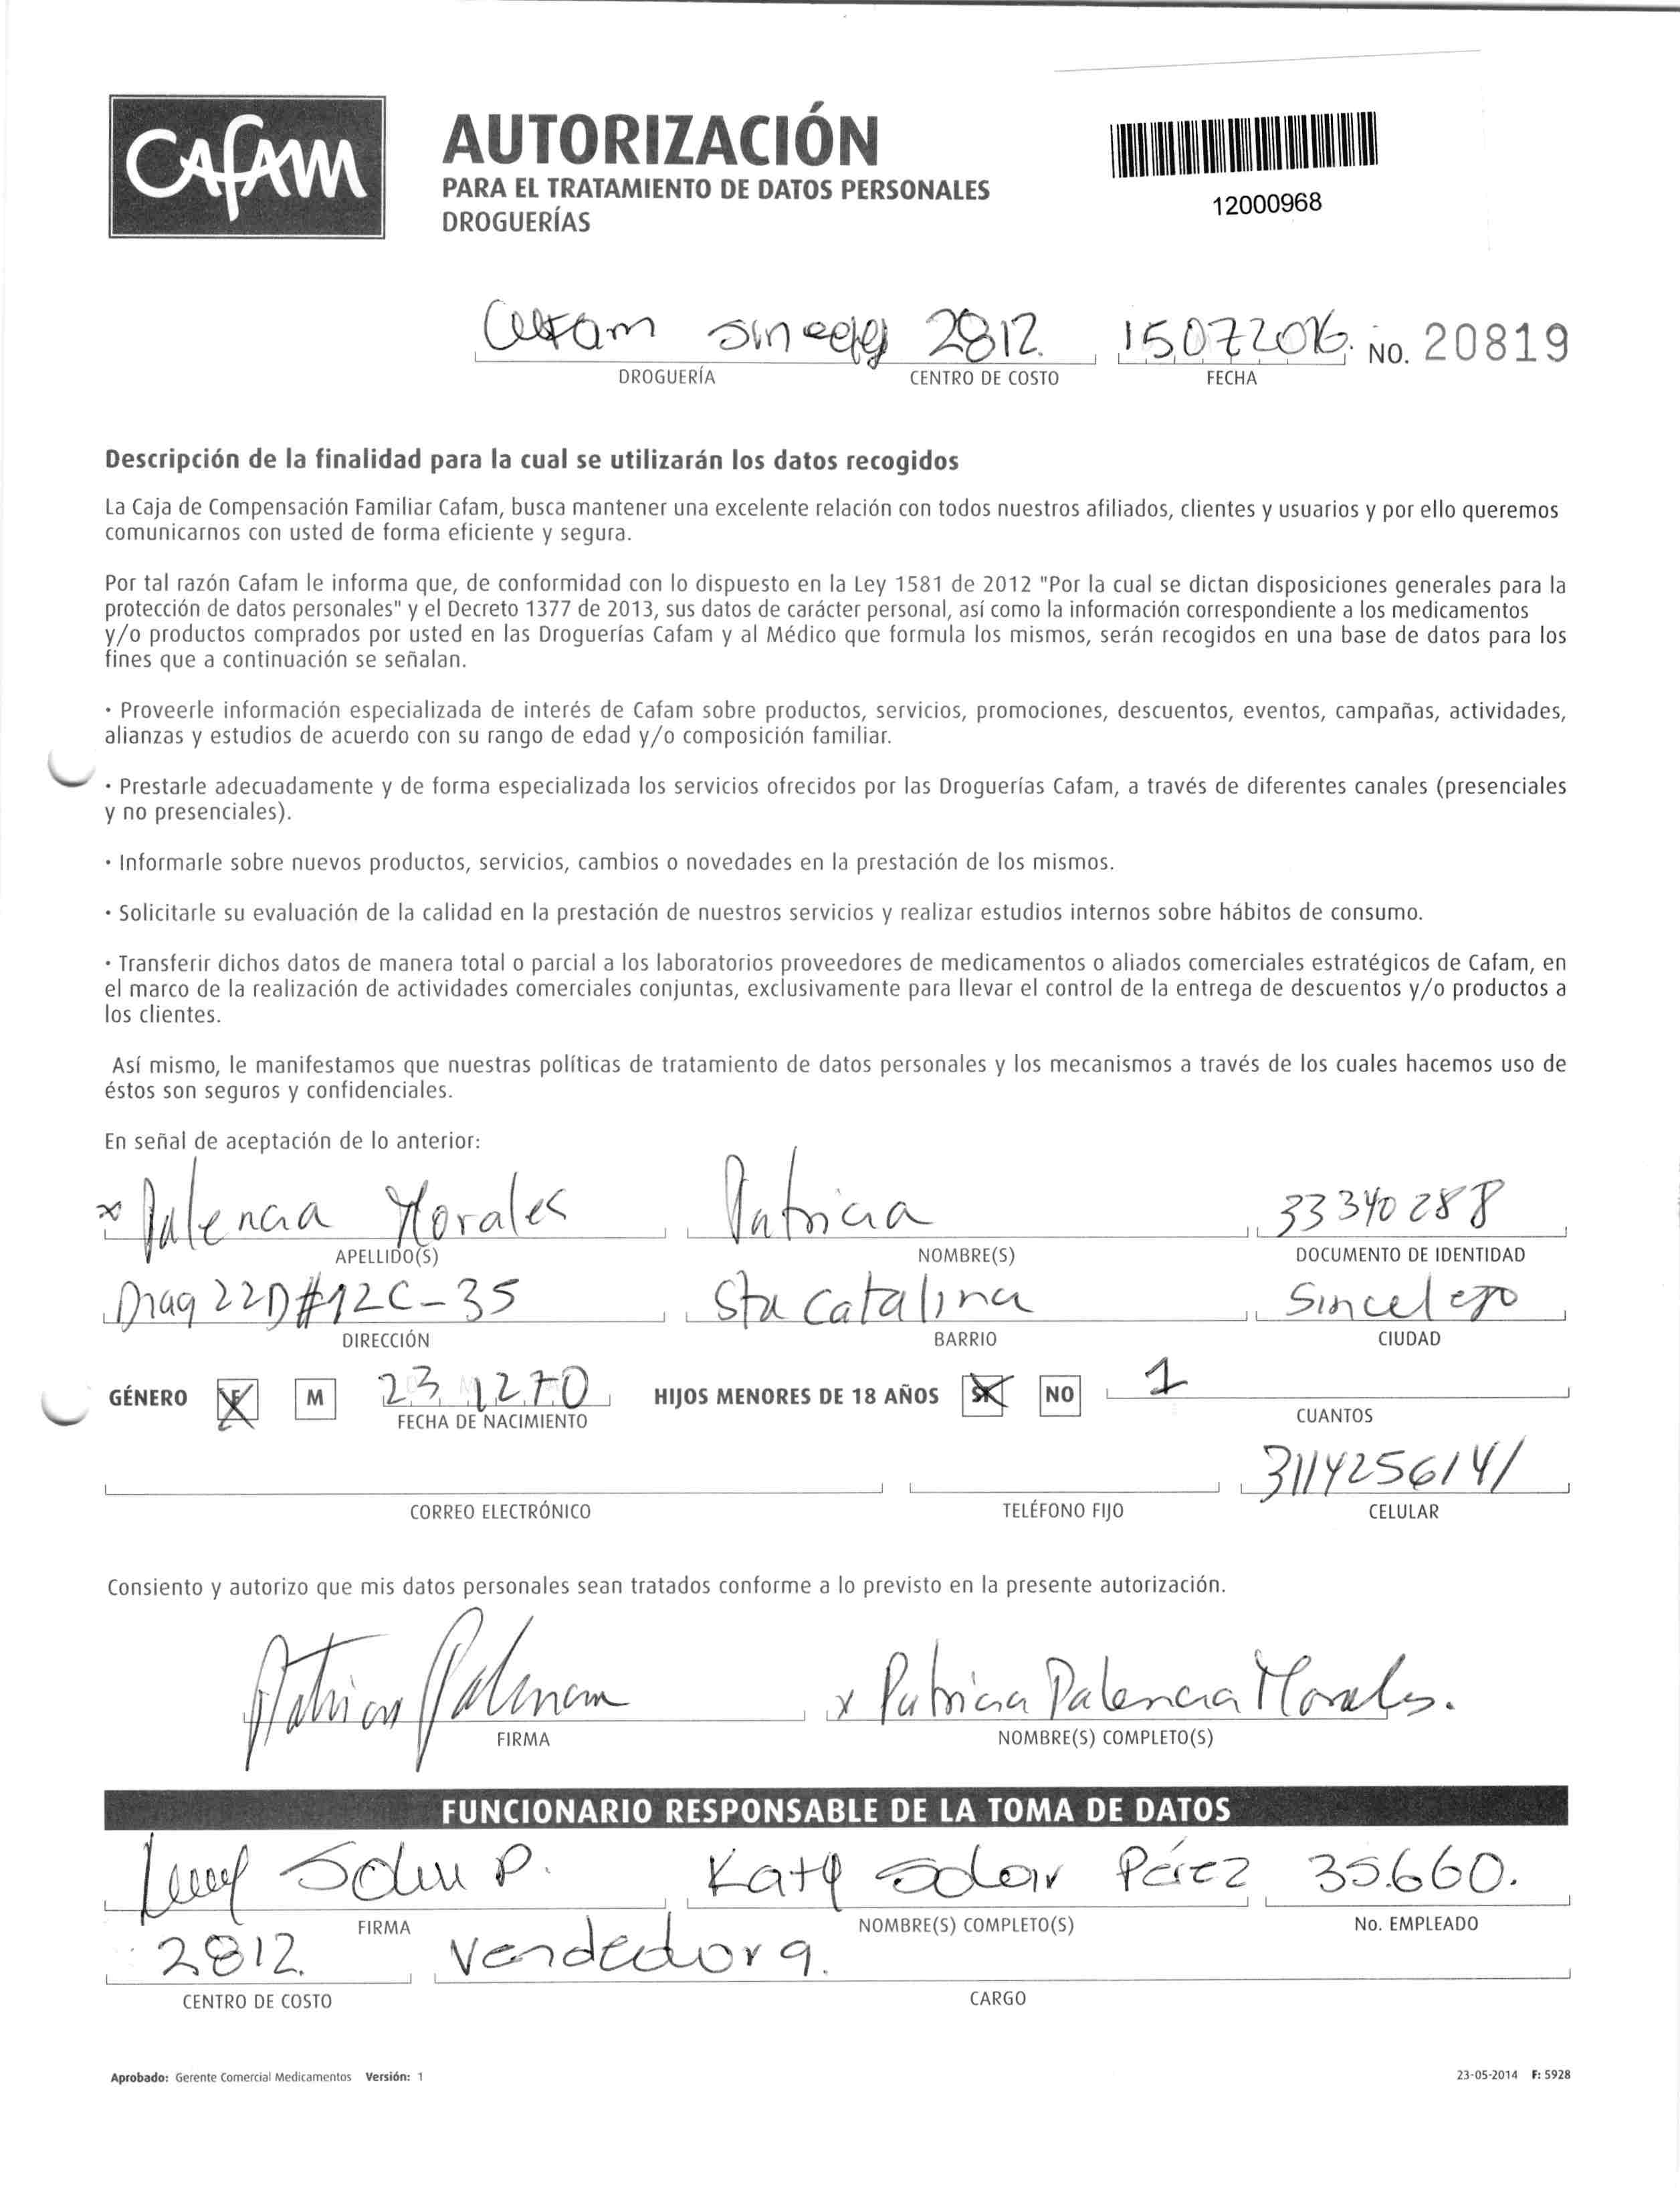 CAFAM
AUTORIZACIÓN
PARA EL TRATAMIENTO DE DATOS PERSONALES
DROGUERÍAS
12000968
Cafam 2812. 15072016. No. 20819
DROGUERÍA CENTRO DE COSTO FECHA
Descripción de la finalidad para la cual se utilizarán los datos recogidos
La Caja de Compensación Familiar Cafam, busca mantener una excelente relación con todos nuestros afiliados, clientes y usuarios y por ello queremos
comunicarnos con usted de forma eficiente y segura.
Por tal razón Cafam le informa que, de conformidad con lo dispuesto en la Ley 1581 de 2012 "Por la cual se dictan disposiciones generales para la
protección de datos personales" y el Decreto 1377 de 2013, sus datos de carácter personal, así como la información correspondiente a los medicamentos
y/o productos comprados por usted en las Droguerías Cafam y al Médico que formula los mismos, serán recogidos en una base de datos para los
fines que a continuación se señalan.
· Proveerle información especializada de interés de Cafam sobre productos, servicios, promociones, descuentos, eventos, campañas, actividades,
alianzas y estudios de acuerdo con su rango de edad y/o composición familiar.
· Prestarle adecuadamente y de forma especializada los servicios ofrecidos por las Droguerías Cafam, a través de diferentes canales (presenciales
y no presenciales).
· Informarle sobre nuevos productos, servicios, cambios o novedades en la prestación de los mismos.
· Solicitarle su evaluación de la calidad en la prestación de nuestros servicios y realizar estudios internos sobre hábitos de consumo.
· Transferir dichos datos de manera total o parcial a los laboratorios proveedores de medicamentos o aliados comerciales estratégicos de Cafam, en
el marco de la realización de actividades comerciales conjuntas, exclusivamente para llevar el control de la entrega de descuentos y/o productos a
los clientes.
Así mismo, le manifestamos que nuestras políticas de tratamiento de datos personales y los mecanismos a través de los cuales hacemos uso de
éstos son seguros y confidenciales.
En señal de aceptación de lo anterior:
x Palencia Morales Patricia 33340288
APELLIDO(S) NOMBRE(S) DOCUMENTO DE IDENTIDAD
Diag 22D#12C-35 Sta Catalina Sincelejo
DIRECCIÓN BARRIO CIUDAD
GÉNERO F M 23 12 70 HIJOS MENORES DE 18 AÑOS SI NO 1
FECHA DE NACIMIENTO CUANTOS
3114256141
CORREO ELECTRÓNICO TELÉFONO FIJO CELULAR
Consiento y autorizo que mis datos personales sean tratados conforme a lo previsto en la presente autorización.
Patricia Palencia x Patricia Palencia Morales.
FIRMA NOMBRE(S) COMPLETO(S)
FUNCIONARIO RESPONSABLE DE LA TOMA DE DATOS
P. Katy Solar Pérez 35.660.
FIRMA NOMBRE(S) COMPLETO(S) No. EMPLEADO
2812. Vendedora.
CENTRO DE COSTO CARGO
Aprobado: Gerente Comercial Medicamentos Versión: 1 23-05-2014 F: 5928